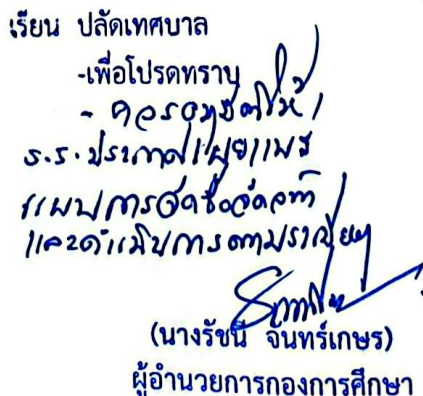 เรียน ปลัดเทศบาล
-เพื่อโปรดทราบ
- ควรอนุมัติให้
ร.ร. ประกาศเผยแพร่
แผนการจัดซื้อจัดจ้าง
และดำเนินการตามระเบียบฯ
(นางรัชนี จันทร์เกษร)
ผู้อำนวยการกองการศึกษา